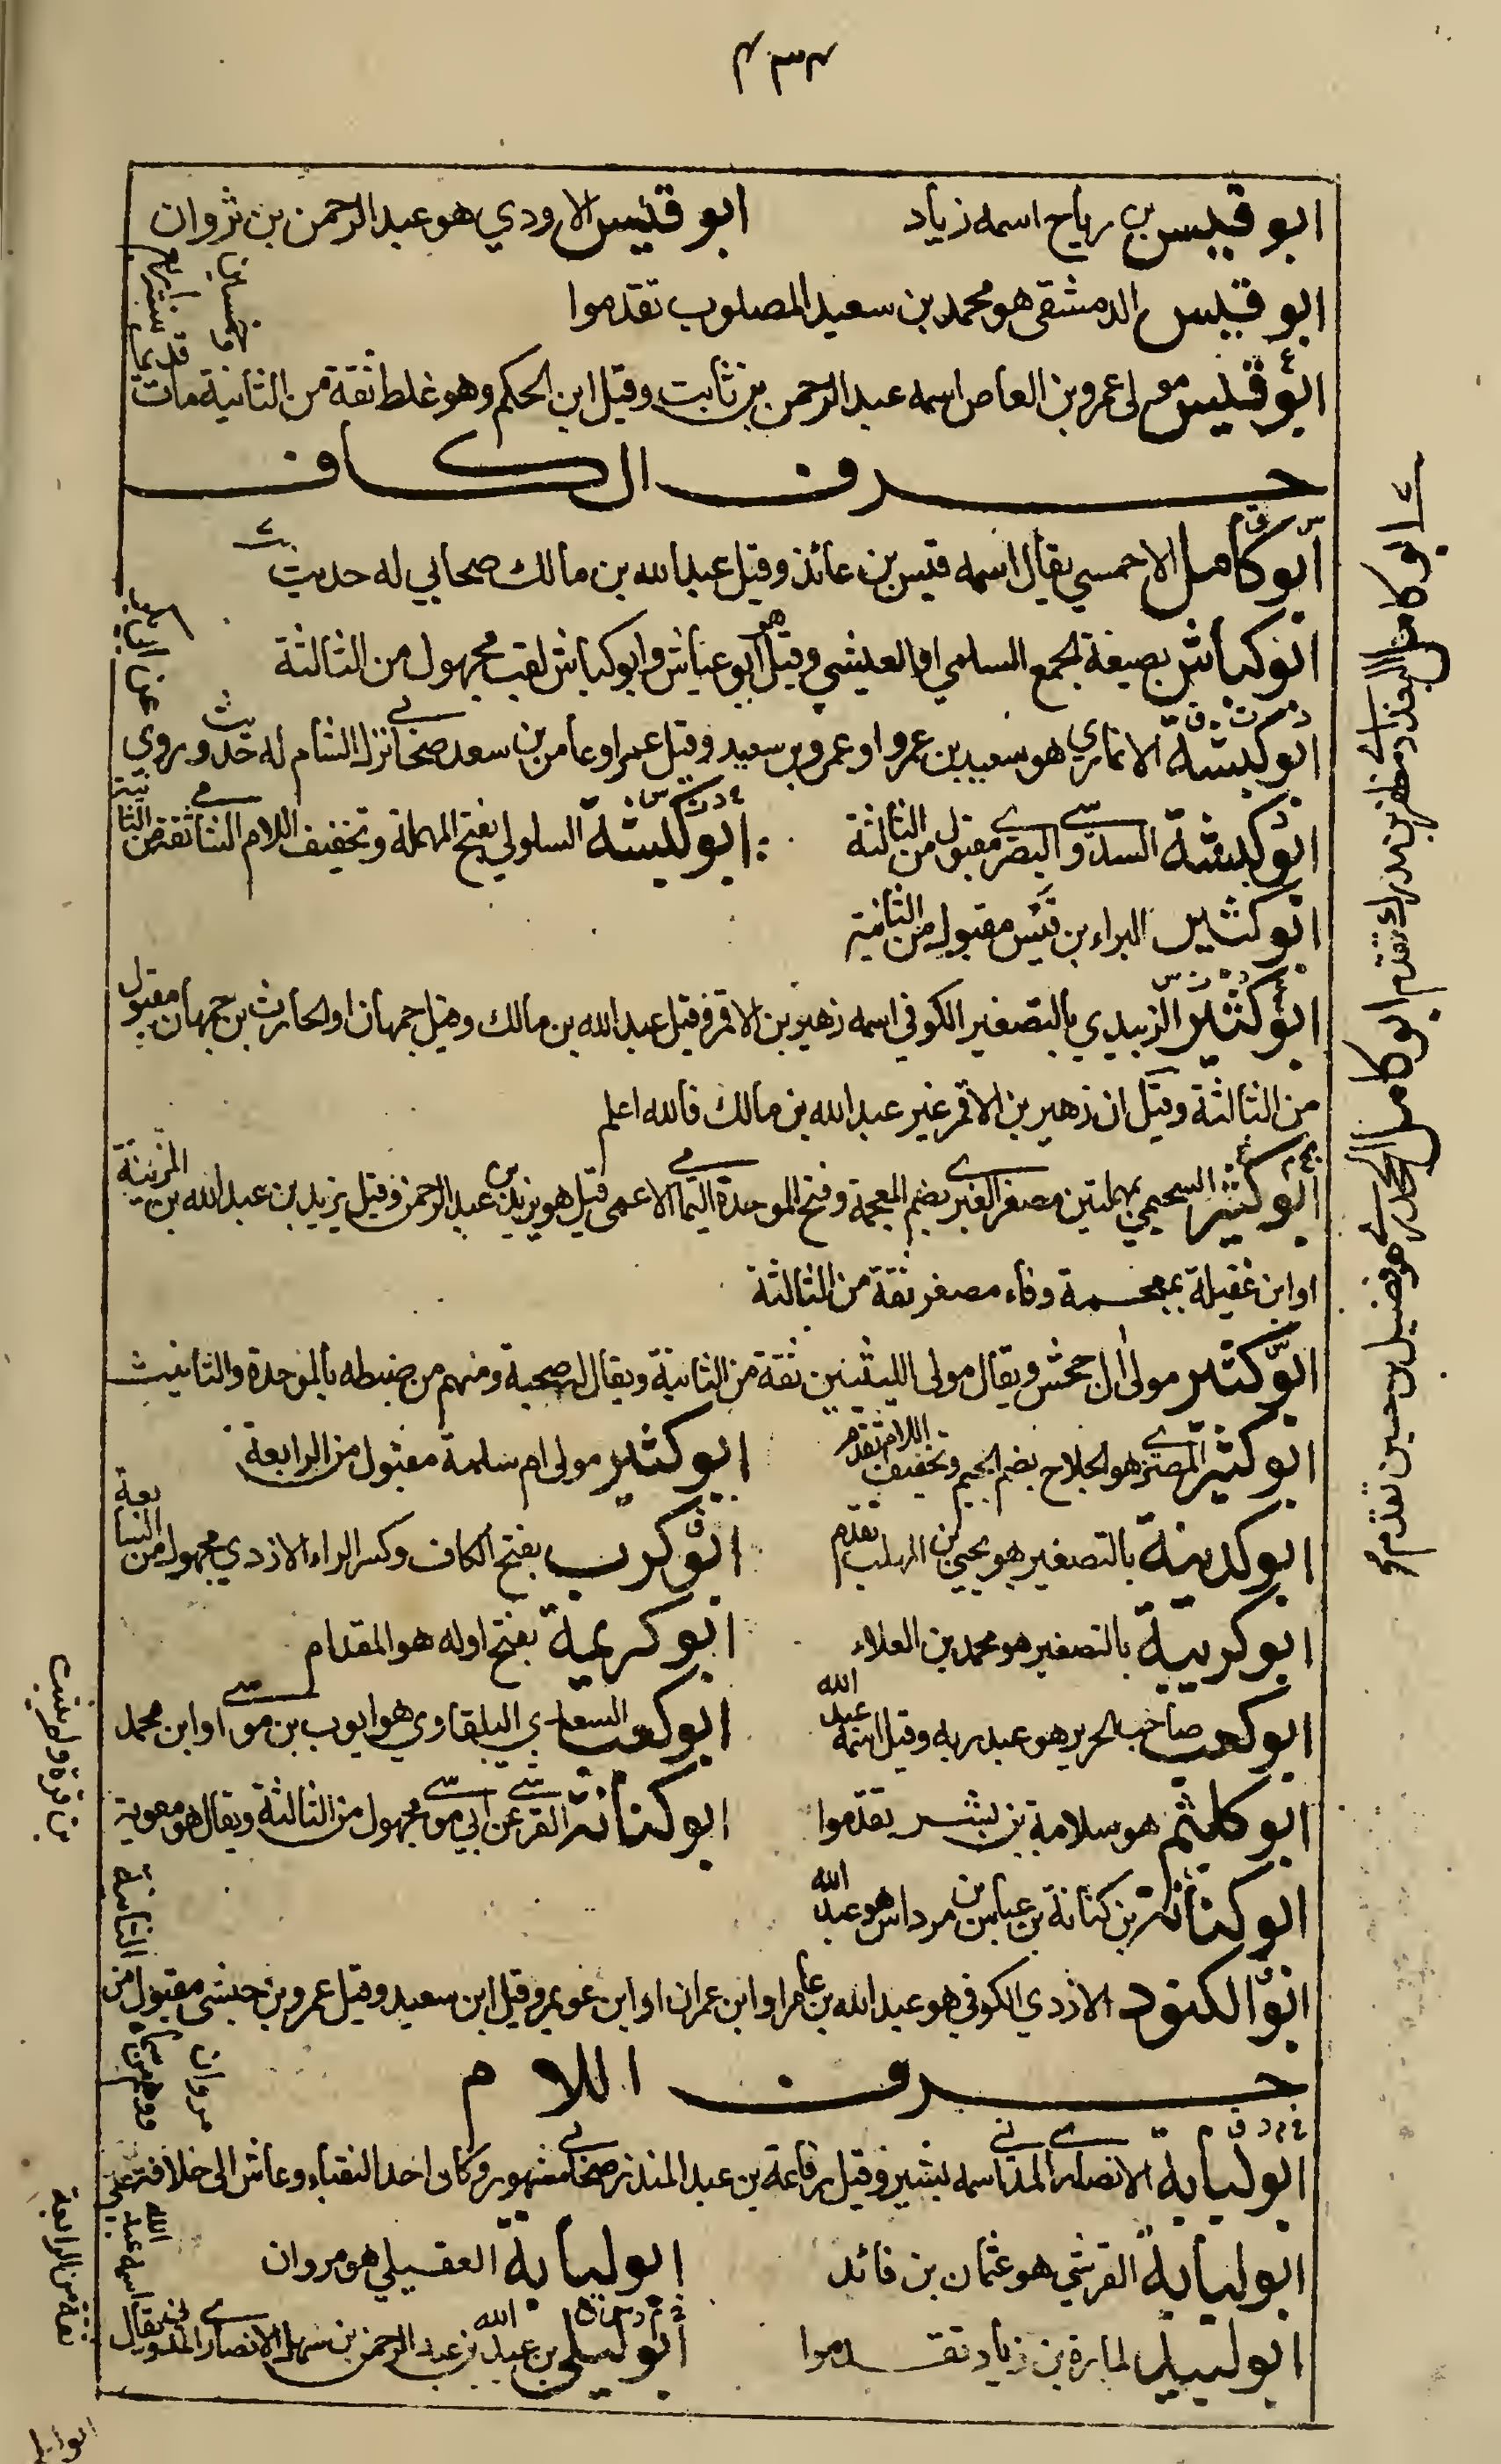 ابو قيس بن رياح اسمه زياد ابو قيس الاودي هو عبد الرحمن بن ثروان
ابو قيس الدمشقي هو محمد بن سعيد المصلوب تقدموا
ابو قيس مولى عمرو بن العاص اسمه عبد الرحمن بن ثابت وقيل ابن الحكم وهو غلط ثقة من الثانية مات
قديما
حرف الكاف
ابو كامل الاحمسي يقال اسمه قيس بن عائذ وقيل عبد الله بن مالك صحابي له حديث
ابو كباش بصيغة الجمع السلمي او العيشي وقيل هو ابو عياش وابو كباش لقب مجهول من الثالثة
ابو كبشة الانماري هو سعيد بن عمرو او عمرو بن سعيد وقيل عمر او عامر بن سعد صحابي نزل الشام له حديث وروى
ابو كبشة السدوسي البصري مقبول من الثالثة ابو كبشة السلولي بفتح المهملة وتخفيف اللام الشامي ثقة من الثانية
ابو كثير البراء بن قيس مقبول من الثانية
ابو كثير الزبيدي بالتصغير الكوفي اسمه زهير بن الاقمر وقيل عبد الله بن مالك وقيل جمهان او الحارث بن جمهان مقبول
من الثالثة وقيل ان زهير بن الاقمر غير عبد الله بن مالك فالله اعلم
ابو كثير السحيمي بمهملتين مصغر الغبري بضم المعجمة وفتح الموحدة اليمامي الاعمى قيل هو يزيد بن عبد الرحمن وقيل يزيد بن عبد الله بن
او ابن غفيلة بمعجمة وفاء مصغر ثقة من الثالثة
ابو كثير مولى ال جحش ويقال مولى الليثيين ثقة من الثانية ويقال له صحبة ومنهم من ضبطه بالموحدة والتانيث
ابو كثير المصري هو الجلاح بضم الجيم وتخفيف اللام تقدم ابو كثير مولى ام سلمة مقبول من الرابعة
ابو كدينة بالتصغير هو يحيى بن المهلب تقدم ابو كرب بفتح الكاف وكسر الراء الازدي مجهول من السابعة
ابو كريبة بالتصغير هو محمد بن العلاء ابو كريمة بفتح اوله هو المقدام
ابو كعب صاحب الحرير هو عبد ربه وقيل اسمه عبد الله ابو كعب السعدي البلقاوي هو ايوب بن موسى او ابن محمد
ابو كلثم هو سلامة بن بشر تقدموا ابو كنانة القرشي عن ابي موسى مجهول من الثالثة ويقال هو معوية
بن قرة ولم يثبت
ابو كنانة بن كنانة بن عباس بن مرداس هو عبد الله
ابو الكنود الازدي الكوفي هو عبد الله بن عامر او ابن عمران او ابن عويمر وقيل ابن سعيد وقيل عمرو بن حبشي مقبول من
الثانية
حرف اللام
ابو لبابة الانصاري المدني اسمه بشير وقيل رفاعة بن عبد المنذر صحابي مشهور وكان احد النقباء وعاش الى خلافة علي
ابو لبابة القرشي هو عثمان بن فائد ابو لبابة العقيلي هو مروان
ابو لبيد لمازة بن زياد تقدموا ابو ليلى بن عبد الله بن عبد الرحمن بن سهل الانصاري المدني ويقال
اسمه عبد الله
ثقة من الرابعة
ابو كامل البغدادي مظفر بن مدرك تقدم ابو كامل الجحدري هو فضيل بن حسين تقدم